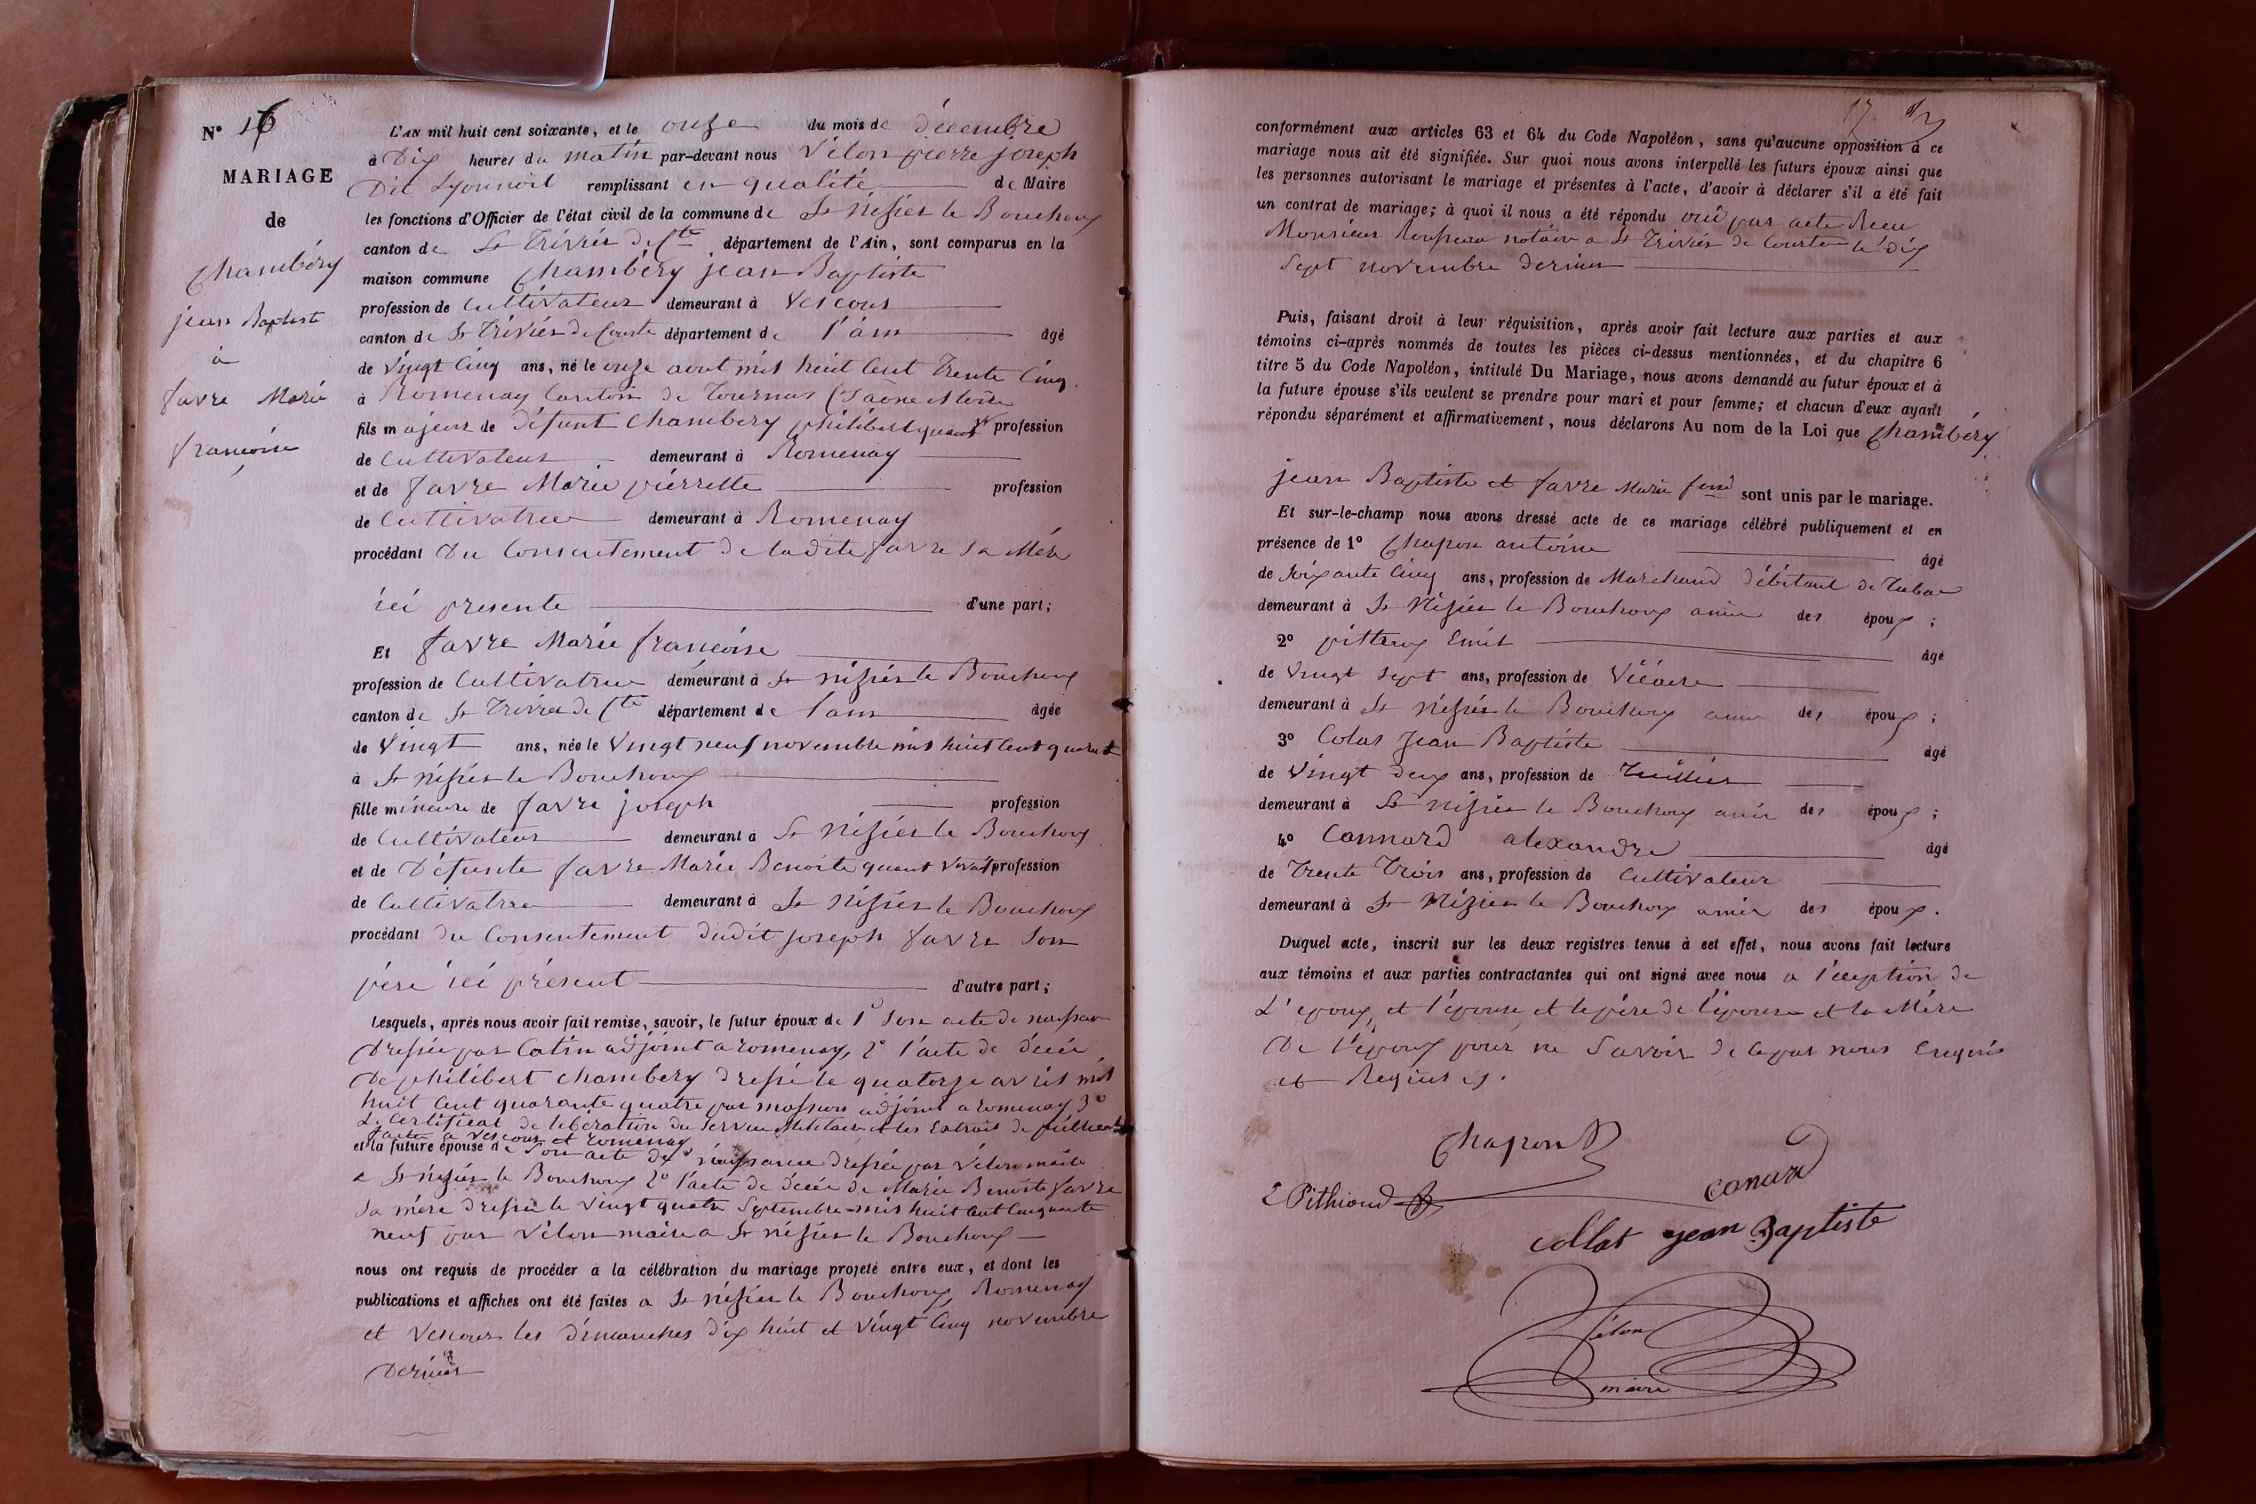 N° 16
MARIAGE
de
Chambéry
jean Baptiste
à
favre Marie
françoise
L'AN mil huit cent soixante, et le onze du mois de décembre
à Dix heures du matin par-devant nous Vélon pierre joseph
Dit Lyonnoit remplissant en qualité de Maire
les fonctions d'Officier de l'état civil de la commune de St Nizier le Bouchoux
canton de St Trivier de Cte, département de l'Ain, sont comparus en la
maison commune Chambéry jean Baptiste
profession de Cultivateur demeurant à Vescours
canton de St Trivier de Courte département de l'ain âgé
de Vingt Cinq ans, né le onze aout mil huit Cent Trente Cinq
à Romenay Canton de Tournus (Saone et Loire
fils majeur de défunt Chambery philibert quand Vt profession
de Cultivateur demeurant à Romenay
et de favre Marie pierrette profession
de Cultivatrice demeurant à Romenay
procédant Du Consentement de ladite favre Sa Mère
ici presente d'une part;
Et favre Marie françoise
profession de Cultivatrice demeurant à St nizier le Bouchoux
canton de St Trivier de Cte département de l'ain âgée
de Vingt ans, née le Vingt neuf novembre mil huit Cent quarante
à St nizier le Bouchoux
fille mineure de favre joseph profession
de Cultivateur demeurant à St Nizier le Bouchoux
et de Défunte favre Marie Benoite quant Vivait profession
de Cultivatrice demeurant à St Nizier le Bouchoux
procédant du Consentement dudit joseph favre Son
père ici présent d'autre part;
Lesquels, après nous avoir fait remise, savoir, le futur époux de 1° Son acte de naissance
Dressée par Catin adjoint a romenay, 2° l'acte de décée
De philibert chambery dressé le quatorze avril mil
huit Cent quarante quatre par adjoint a romenay 3°
Le Certificat de libération du Service Militaire et les Extraits de publicat
faite a Vescours et romenay
et la future épouse de Son acte de naissance dressée par Vélon maire
a St nizier le Bouchoux 2° l'acte de décée de Marie Benoite favre
Sa mère dressé le Vingt quatre Septembre mil huit Cent Cinquante
neuf par Vélon maire a St nizier le Bouchoux
nous ont requis de procéder à la célébration du mariage projeté entre eux, et dont les
publications et affiches ont été faites a St nizier le Bouchoux, Romenay
et Vescours les dimanches dix huit et Vingt Cinq novembre
Dernier
17
conformément aux articles 63 et 64 du Code Napoléon, sans qu'aucune opposition à ce
mariage nous ait été signifiée. Sur quoi nous avons interpellé les futurs époux ainsi que
les personnes autorisant le mariage et présentes à l'acte, d'avoir à déclarer s'il a été fait
un contrat de mariage; à quoi il nous a été répondu oui par acte Recu
Monsieur notaire a St Trivier de Courte le dix
Sept novembre dernier
Puis, faisant droit à leur réquisition, après avoir fait lecture aux parties et aux
témoins ci-après nommés de toutes les pièces ci-dessus mentionnées, et du chapitre 6
titre 5 du Code Napoléon, intitulé Du Mariage, nous avons demandé au futur époux et à
la future épouse s'ils veulent se prendre pour mari et pour femme; et chacun d'eux ayant
répondu séparément et affirmativement, nous déclarons Au nom de la Loi que Chambéry
jean Baptiste et favre Marie fse sont unis par le mariage.
Et sur-le-champ nous avons dressé acte de ce mariage célébré publiquement et en
présence de 1° Chapon antoine âgé
de Soixante Cinq ans, profession de Marchand débitant de Tabac
demeurant à St Nizier le Bouchoux amie des époux;
2° pitteux Emil âgé
de Vingt Sept ans, profession de Viéaire
demeurant à St Nizier le Bouchoux amie des époux;
3° Colas Jean Baptiste âgé
de Vingt deux ans, profession de Tuillier
demeurant à St nizier le Bouchoux amie des époux;
4° Connard alexandre âgé
de Trente Trois ans, profession de Cultivateur
demeurant à St Nizier le Bouchoux amie des époux.
Duquel acte, inscrit sur les deux registres tenus à cet effet, nous avons fait lecture
aux témoins et aux parties contractantes qui ont signé avec nous a l'éception de
L'époux, et l'épouse et le père de l'épouse et la Mère
De l'époux pour ne Savoir de ce par nous Enquis
et Requis
Chapon
E Pithioud
conard
collat jean Baptiste
Vélon
maire